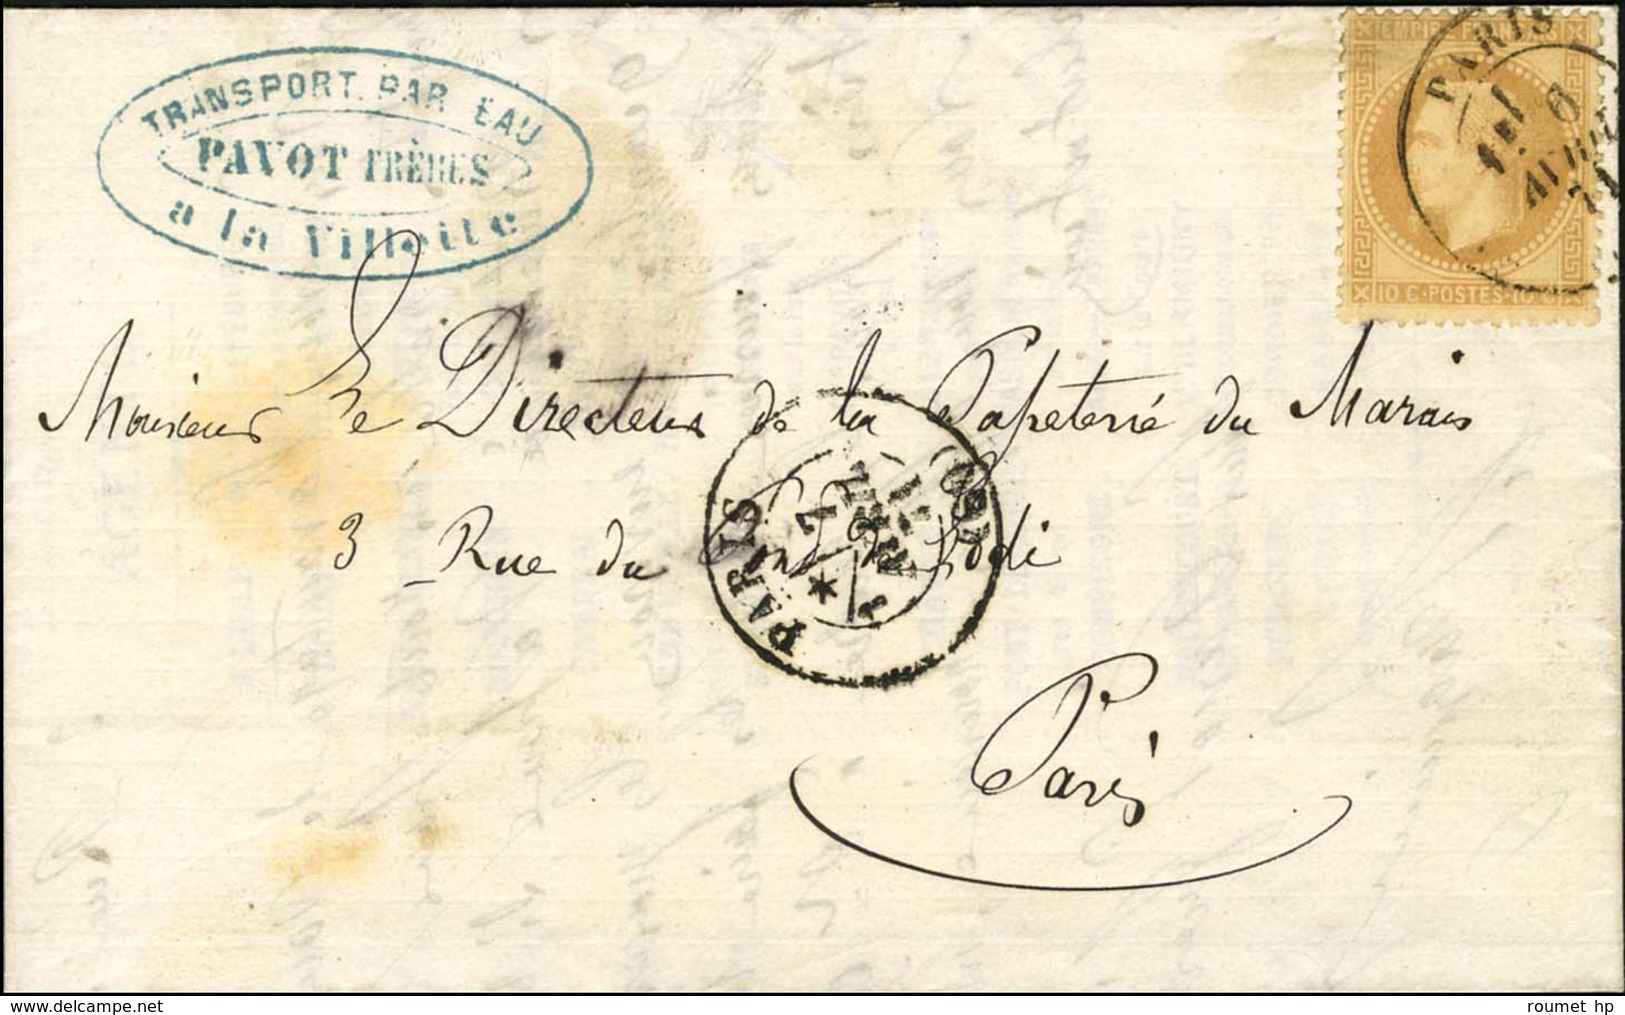 TRANSPORT PAR EAU
PAVOT FRÈRES
a la Villette
EMPIRE FRANÇAIS
10 C · POSTES · 10 C
PARIS
1E/
6
AVRIL
71
Monsieur Le Directeur de la Papeterie du Marais
3 Rue du Pont de Lodi
PARIS
(60)
7
AVRIL
71
Paris
roumet hp